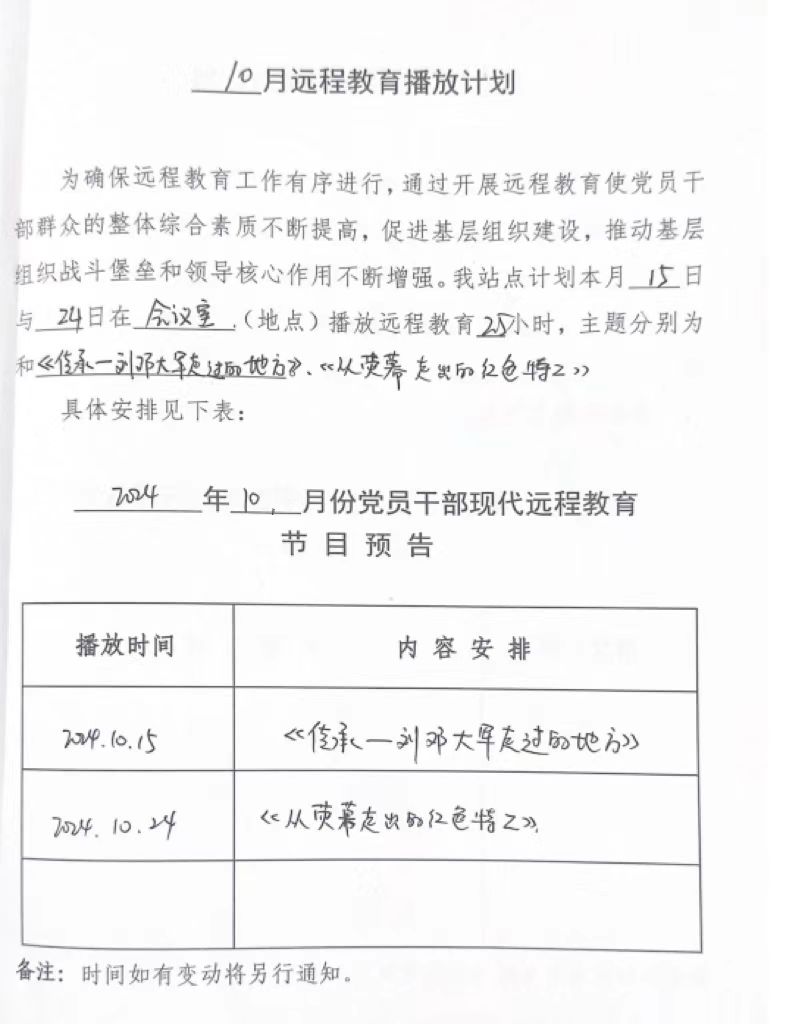 10月远程教育播放计划
为确保远程教育工作有序进行，通过开展远程教育使党员干
部群众的整体综合素质不断提高，促进基层组织建设，推动基层
组织战斗堡垒和领导核心作用不断增强。我站点计划本月 15 日
与 24日在 会议室 （地点）播放远程教育 25小时，主题分别为
和《传承—刘邓大军走过的地方》、《从荧幕走出的红色特工》
具体安排见下表：
2024 年 10 月份党员干部现代远程教育
节目预告
播放时间 内容安排
2024.10.15 《传承—刘邓大军走过的地方》
2024.10.24 《从荧幕走出的红色特工》
备注：时间如有变动将另行通知。